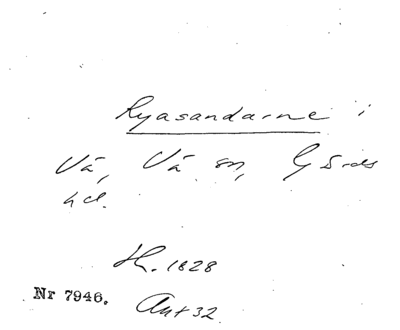 Ryasandarne i
Vä, Vä sn, Gärds
hd.
H. 1828
Nr 7946. Ant 32